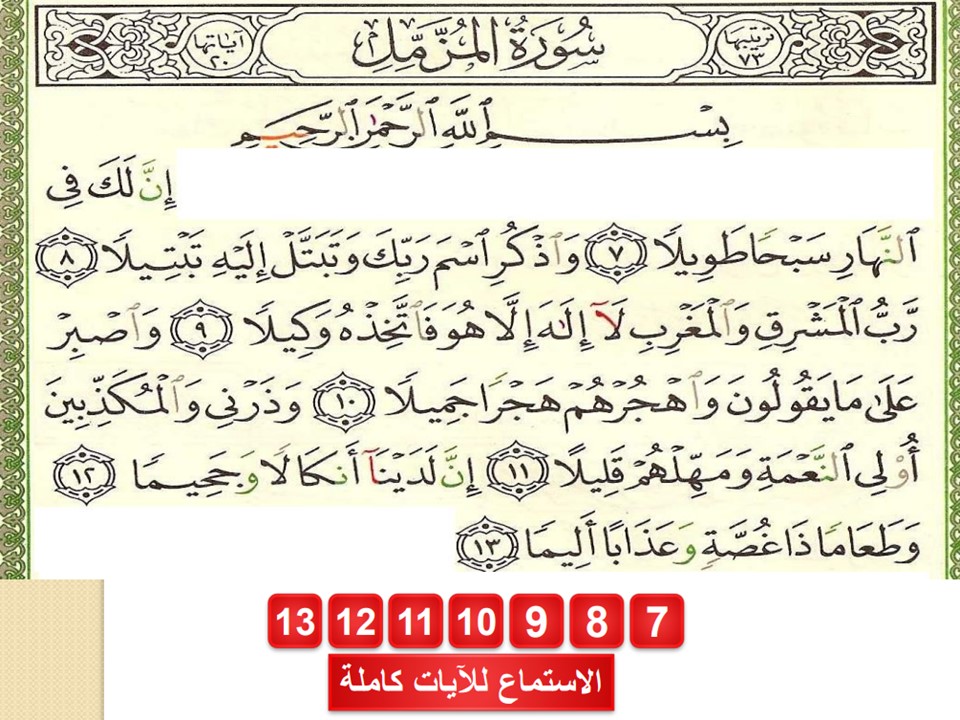 ترتيبها ٧٣ سُورَةُ المُزَّمِّل آياتها ٢٠
بِسْمِ ٱللَّهِ ٱلرَّحْمَٰنِ ٱلرَّحِيمِ
إِنَّ لَكَ فِى
ٱلنَّهَارِ سَبْحًا طَوِيلًا ٧ وَٱذْكُرِ ٱسْمَ رَبِّكَ وَتَبَتَّلْ إِلَيْهِ تَبْتِيلًا ٨
رَّبُّ ٱلْمَشْرِقِ وَٱلْمَغْرِبِ لَآ إِلَٰهَ إِلَّا هُوَ فَٱتَّخِذْهُ وَكِيلًا ٩ وَٱصْبِرْ
عَلَىٰ مَا يَقُولُونَ وَٱهْجُرْهُمْ هَجْرًا جَمِيلًا ١٠ وَذَرْنِى وَٱلْمُكَذِّبِينَ
أُو۟لِى ٱلنَّعْمَةِ وَمَهِّلْهُمْ قَلِيلًا ١١ إِنَّ لَدَيْنَآ أَنكَالًا وَجَحِيمًا ١٢
وَطَعَامًا ذَا غُصَّةٍ وَعَذَابًا أَلِيمًا ١٣
7 8 9 10 11 12 13
الاستماع للآيات كاملة